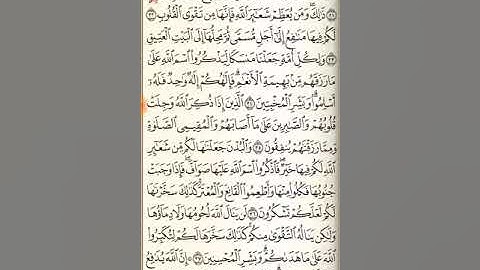 ﴿٣١﴾ ذَٰلِكَ وَمَن يُعَظِّمْ شَعَٰٓئِرَ ٱللَّهِ فَإِنَّهَا مِن تَقْوَى ٱلْقُلُوبِ ﴿٣٢﴾
لَكُمْ فِيهَا مَنَٰفِعُ إِلَىٰٓ أَجَلٍ مُّسَمًّى ثُمَّ مَحِلُّهَآ إِلَى ٱلْبَيْتِ ٱلْعَتِيقِ
﴿٣٣﴾ وَلِكُلِّ أُمَّةٍ جَعَلْنَا مَنسَكًا لِّيَذْكُرُوا۟ ٱسْمَ ٱللَّهِ عَلَىٰ
مَا رَزَقَهُم مِّنۢ بَهِيمَةِ ٱلْأَنْعَٰمِ فَإِلَٰهُكُمْ إِلَٰهٌ وَٰحِدٌ فَلَهُۥٓ
أَسْلِمُوا۟ وَبَشِّرِ ٱلْمُخْبِتِينَ ﴿٣٤﴾ ٱلَّذِينَ إِذَا ذُكِرَ ٱللَّهُ وَجِلَتْ
قُلُوبُهُمْ وَٱلصَّٰبِرِينَ عَلَىٰ مَآ أَصَابَهُمْ وَٱلْمُقِيمِى ٱلصَّلَوٰةِ
وَمِمَّا رَزَقْنَٰهُمْ يُنفِقُونَ ﴿٣٥﴾ وَٱلْبُدْنَ جَعَلْنَٰهَا لَكُم مِّن شَعَٰٓئِرِ
ٱللَّهِ لَكُمْ فِيهَا خَيْرٌ فَٱذْكُرُوا۟ ٱسْمَ ٱللَّهِ عَلَيْهَا صَوَآفَّ فَإِذَا وَجَبَتْ
جُنُوبُهَا فَكُلُوا۟ مِنْهَا وَأَطْعِمُوا۟ ٱلْقَانِعَ وَٱلْمُعْتَرَّ كَذَٰلِكَ سَخَّرْنَٰهَا
لَكُمْ لَعَلَّكُمْ تَشْكُرُونَ ﴿٣٦﴾ لَن يَنَالَ ٱللَّهَ لُحُومُهَا وَلَا دِمَآؤُهَا
وَلَٰكِن يَنَالُهُ ٱلتَّقْوَىٰ مِنكُمْ كَذَٰلِكَ سَخَّرَهَا لَكُمْ لِتُكَبِّرُوا۟
ٱللَّهَ عَلَىٰ مَا هَدَىٰكُمْ وَبَشِّرِ ٱلْمُحْسِنِينَ ﴿٣٧﴾ إِنَّ ٱللَّهَ يُدَٰفِعُ